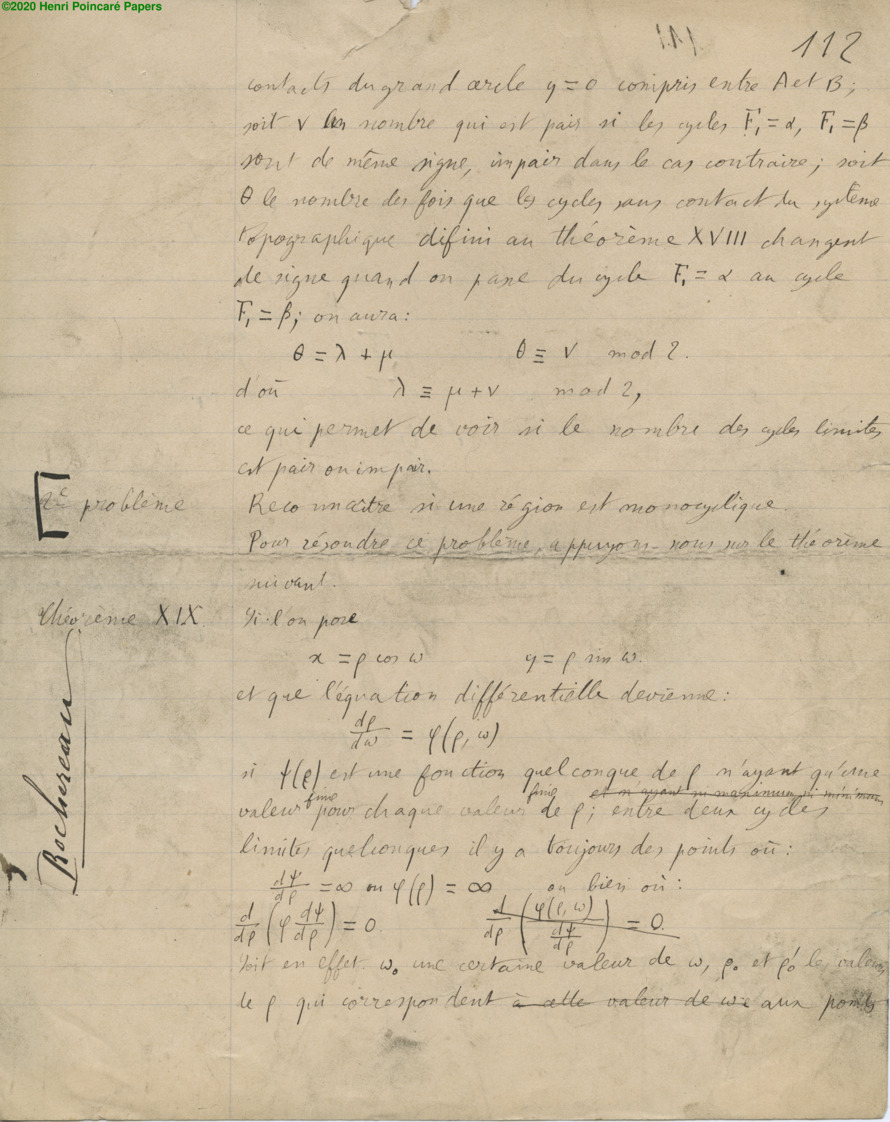 ©2020 Henri Poincaré Papers
112
contacts du grand cercle y = 0 compris entre A et B;
soit ν un nombre qui est pair si les cycles F₁ = α, F₁ = β
sont de même signe, impair dans le cas contraire; soit
θ le nombre des fois que les cycles sans contact du système
topographique défini au théorème XVIII changent
de signe quand on passe du cycle F₁ = α au cycle
F₁ = β; on aura:
θ = λ + μ θ ≡ ν mod 2.
d'où λ ≡ μ + ν mod 2,
ce qui permet de voir si le nombre des cycles limites
est pair ou impair.
2e problème Reconnaître si une région est monocyclique.
Pour résoudre ce problème, appuyons-nous sur le théorème
suivant.
Théorème XIX. Si l'on pose
x = ρ cos ω y = ρ sin ω.
et que l'équation différentielle devienne:
dρ/dω = φ(ρ, ω)
si ψ(ρ) est une fonction quelconque de ρ n'ayant qu'une
et n'ayant ni maximum ni minimum
valeur finie pour chaque valeur finie de ρ; entre deux cycles
limites quelconques il y a toujours des points où:
dψ/dρ = ∞ ou φ(ρ) = ∞ ou bien où:
d/dρ (φ dψ/dρ) = 0 d/dρ (φ(ρ, ω) / dψ/dρ) = 0.
Soit en effet ω₀ une certaine valeur de ω, ρ₀ et ρ'₀ les valeurs
de ρ qui correspondent à cette valeur de ω aux points
Rochereau